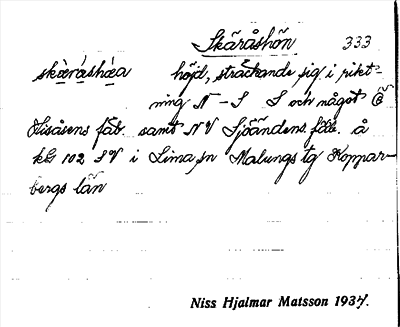 Skäråshön 333
skæråshəa höjd, sträckande sig i rikt-
ning N-S S och något Ö
Hisåsens fäb. samt NV Sjöändens fäb. å
kbl 102 SV i Lima sn Malungs tg Koppar-
bergs län
Niss Hjalmar Matsson 1937.